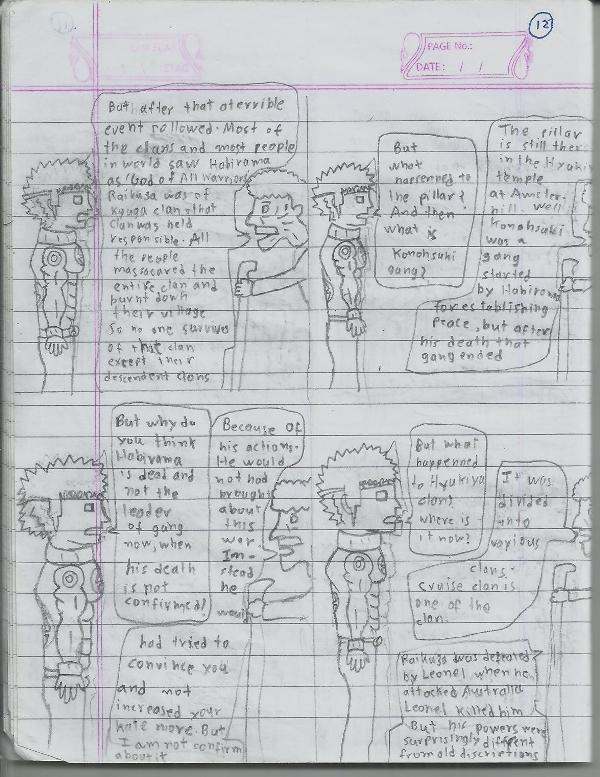 12
PAGE No.:
DATE: / /
But after that a terrible
event followed. Most of
the clans and most people
in world saw Habirama
as 'God of All Warriors'
Raikaza was of
Kyuga clan. that
clan was held
responsible. All
the people
massacared the
entire clan and
burnt down
their village
So no one survives
of that clan
except their
descendent clans
But
what
happenned to
the pillar?
And then
what is
Konohsuki
gang?
The pillar
is still ther
in the Hyuki
temple
at Amster-
hill. Well
Konohsuki
was a
gang
started
by Habirama
for establishing
peace, but after
his death that
gang ended
But why do
you think
Habirama
is dead and
not the
leader
of gang
now, when
his death
is not
confirmed?
Because of
his actions.
He would
not had
brought
about
this
war.
In-
stead
he
would
had tried to
convince you
and not
increased your
hate more. But
I am not confirm
about it
But what
happenned
to Hyukiya
clan?
where is
it now?
It was
divided
into
various
clans.
Cruise clan is
one of the
clan.
Raikaza was defeated
by Leonel when he
attacked Australia
Leonel killed him
But his powers were
surprisingly different
from old discriptions